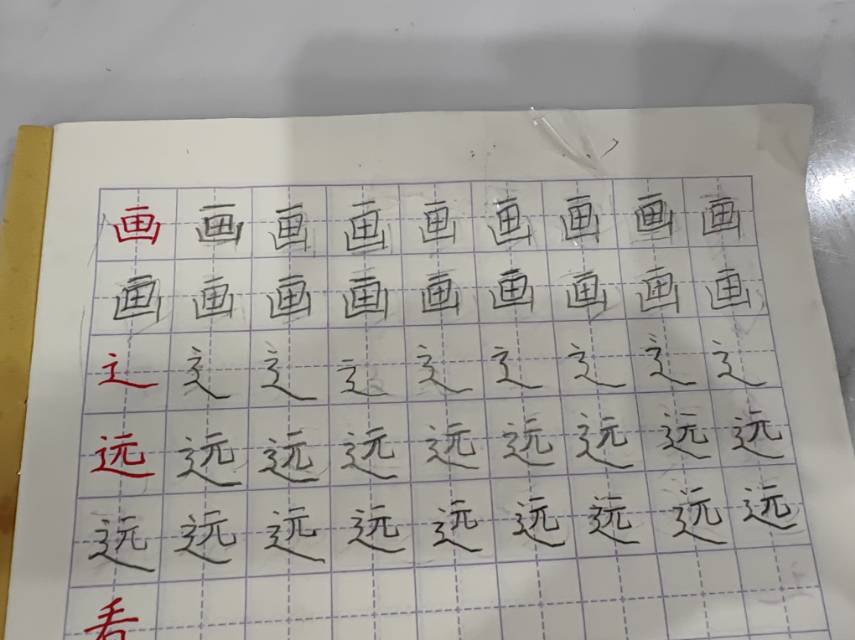 画画画画画画画画画
画画画画画画画画画
辶辶辶辶辶辶辶辶辶
远远远远远远远远远
远远远远远远远远远
看